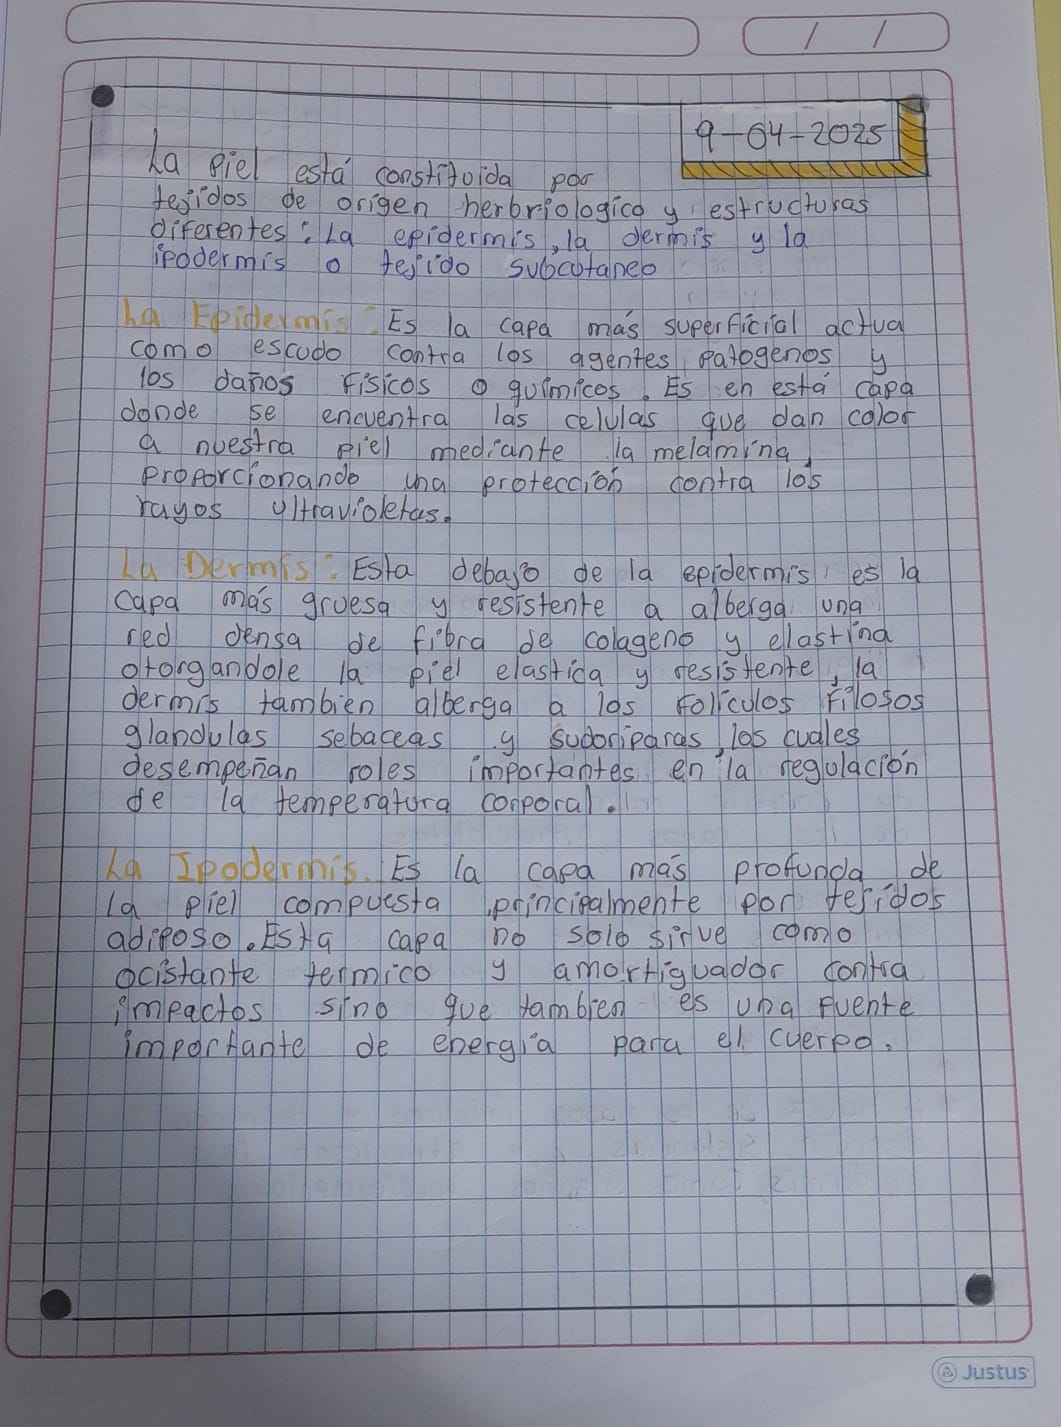 9-04-2025
La piel está constituida por
tejidos de origen herbriologico y estructuras
diferentes: La epidermis, la dermis y la
ipodermis o tejido subcutaneo
La Epidermis: Es la capa más superficial actua
como escudo contra los agentes patogenos y
los daños fisicos o quimicos. Es en está capa
donde se encuentra las celulas que dan color
a nuestra piel mediante la melamina,
proporcionando una protección contra los
rayos ultravioletas.
La Dermis: Esta debajo de la epidermis, es la
capa más gruesa y resistente a alberga una
red densa de fibra de colageno y elastina
otorgandole la piel elastica y resistente, la
dermis tambien alberga a los foliculos filosos
glandulas sebaceas y sudoriparas, los cuales
desempeñan roles importantes en la regulación
de la temperatura corporal.
La Ipodermis. Es la capa más profunda de
la piel compuesta principalmente por tejidos
adiposo. Esta capa no solo sirve como
ocistante termico y amortiguador contra
impactos sino que tambien es una fuente
importante de energia para el cuerpo.
Justus